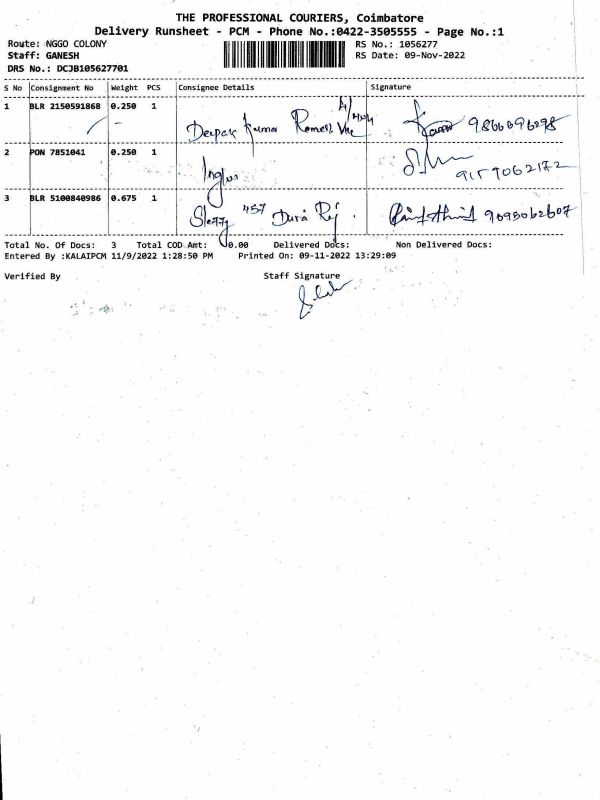 THE PROFESSIONAL COURIERS, Coimbatore
Delivery Runsheet - PCM - Phone No.:0422-3505555 - Page No.:1
Route: NGGO COLONY RS No.: 1056277
Staff: GANESH RS Date: 09-Nov-2022
DRS No.: DCJB105627701
S No Consignment No Weight PCS Consignee Details Signature
1 BLR 2150591868 0.250 1
Deepak Kumar Ramesh
2 PON 7851041 0.250 1
9159062172
3 BLR 5100840986 0.675 1
Durai Raj. 9095062607
Total No. Of Docs: 3 Total COD Amt: 0.00 Delivered Docs: Non Delivered Docs:
Entered By :KALAIPCM 11/9/2022 1:28:50 PM Printed On: 09-11-2022 13:29:09
Verified By Staff Signature